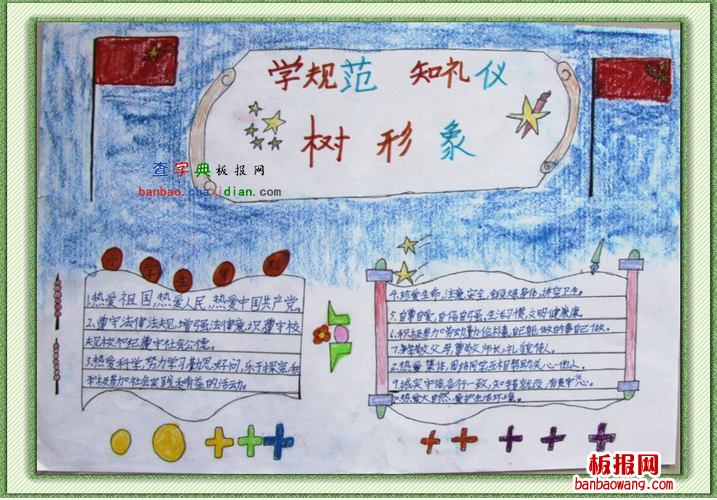 学规范 知礼仪
树形象
查字典板报网
banbao.chazidian.com
小学生守则
1.热爱祖国,热爱人民,热爱中国共产党。
2.遵守法律法规,增强法律意识,遵守校
规校纪,遵守社会公德。
3.热爱科学,努力学习,勤思好问,乐于探究,积
极参加社会实践和有益的活动。
4.珍爱生命,注意安全,锻炼身体,讲究卫生。
5.自尊自爱,自信自强,生活习惯文明健康。
6.积极参加劳动,勤俭朴素,自己能做的事自己做。
7.孝敬父母,尊敬师长,礼貌待人。
8.热爱集体,团结同学,互相帮助,关心他人。
9.诚实守信,言行一致,知错就改,有责任心。
热爱大自然,爱护生活环境。
板报网
banbaowang.com